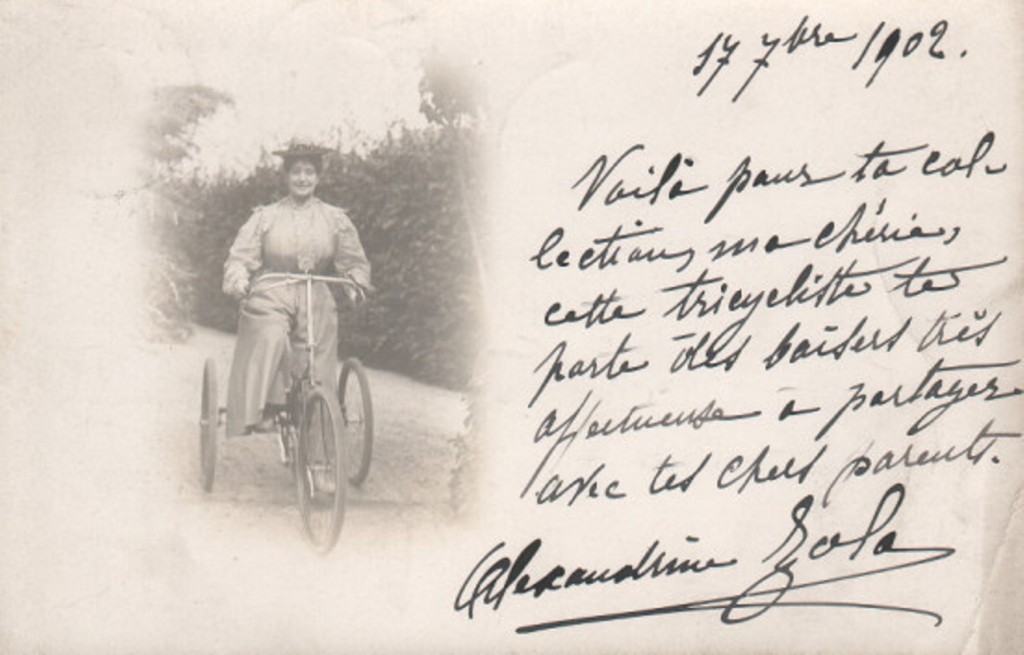 17 7bre 1902.
Voilà pour ta col-
lection, ma chérie,
cette tricycliste te
porte des baisers très
affectueuse à partager
avec tes chers parents.
Alexandrine Zola